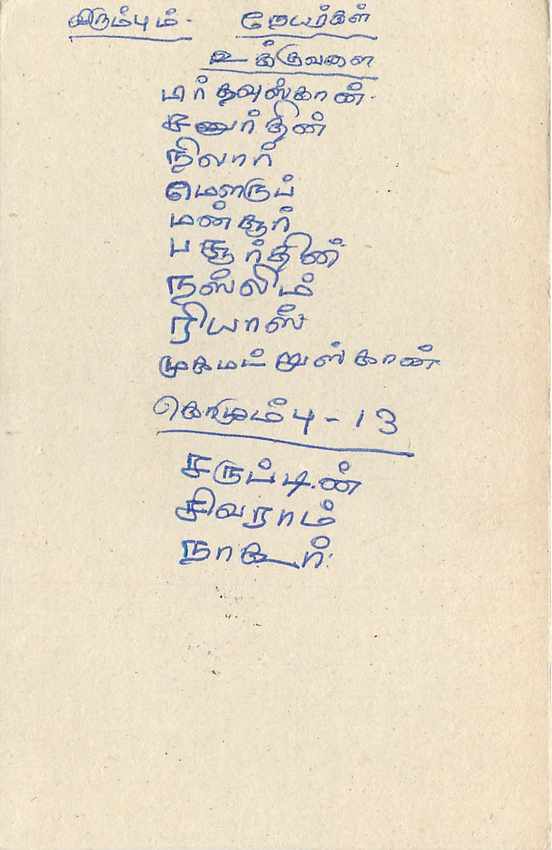 விரும்பும் - நேயர்கள்
உக்குவளை
பர்தவுஸ்கான்.
சனுர்தின்
நிலார்
மௌரூப்
மன்சூர்
பசூர்தின்
நஸ்லிம்
ரியாஸ்
முகமட் றுஸ்கான்
கொழும்பு - 13
சருப்டின்
சிவராம்
நாகூர்.